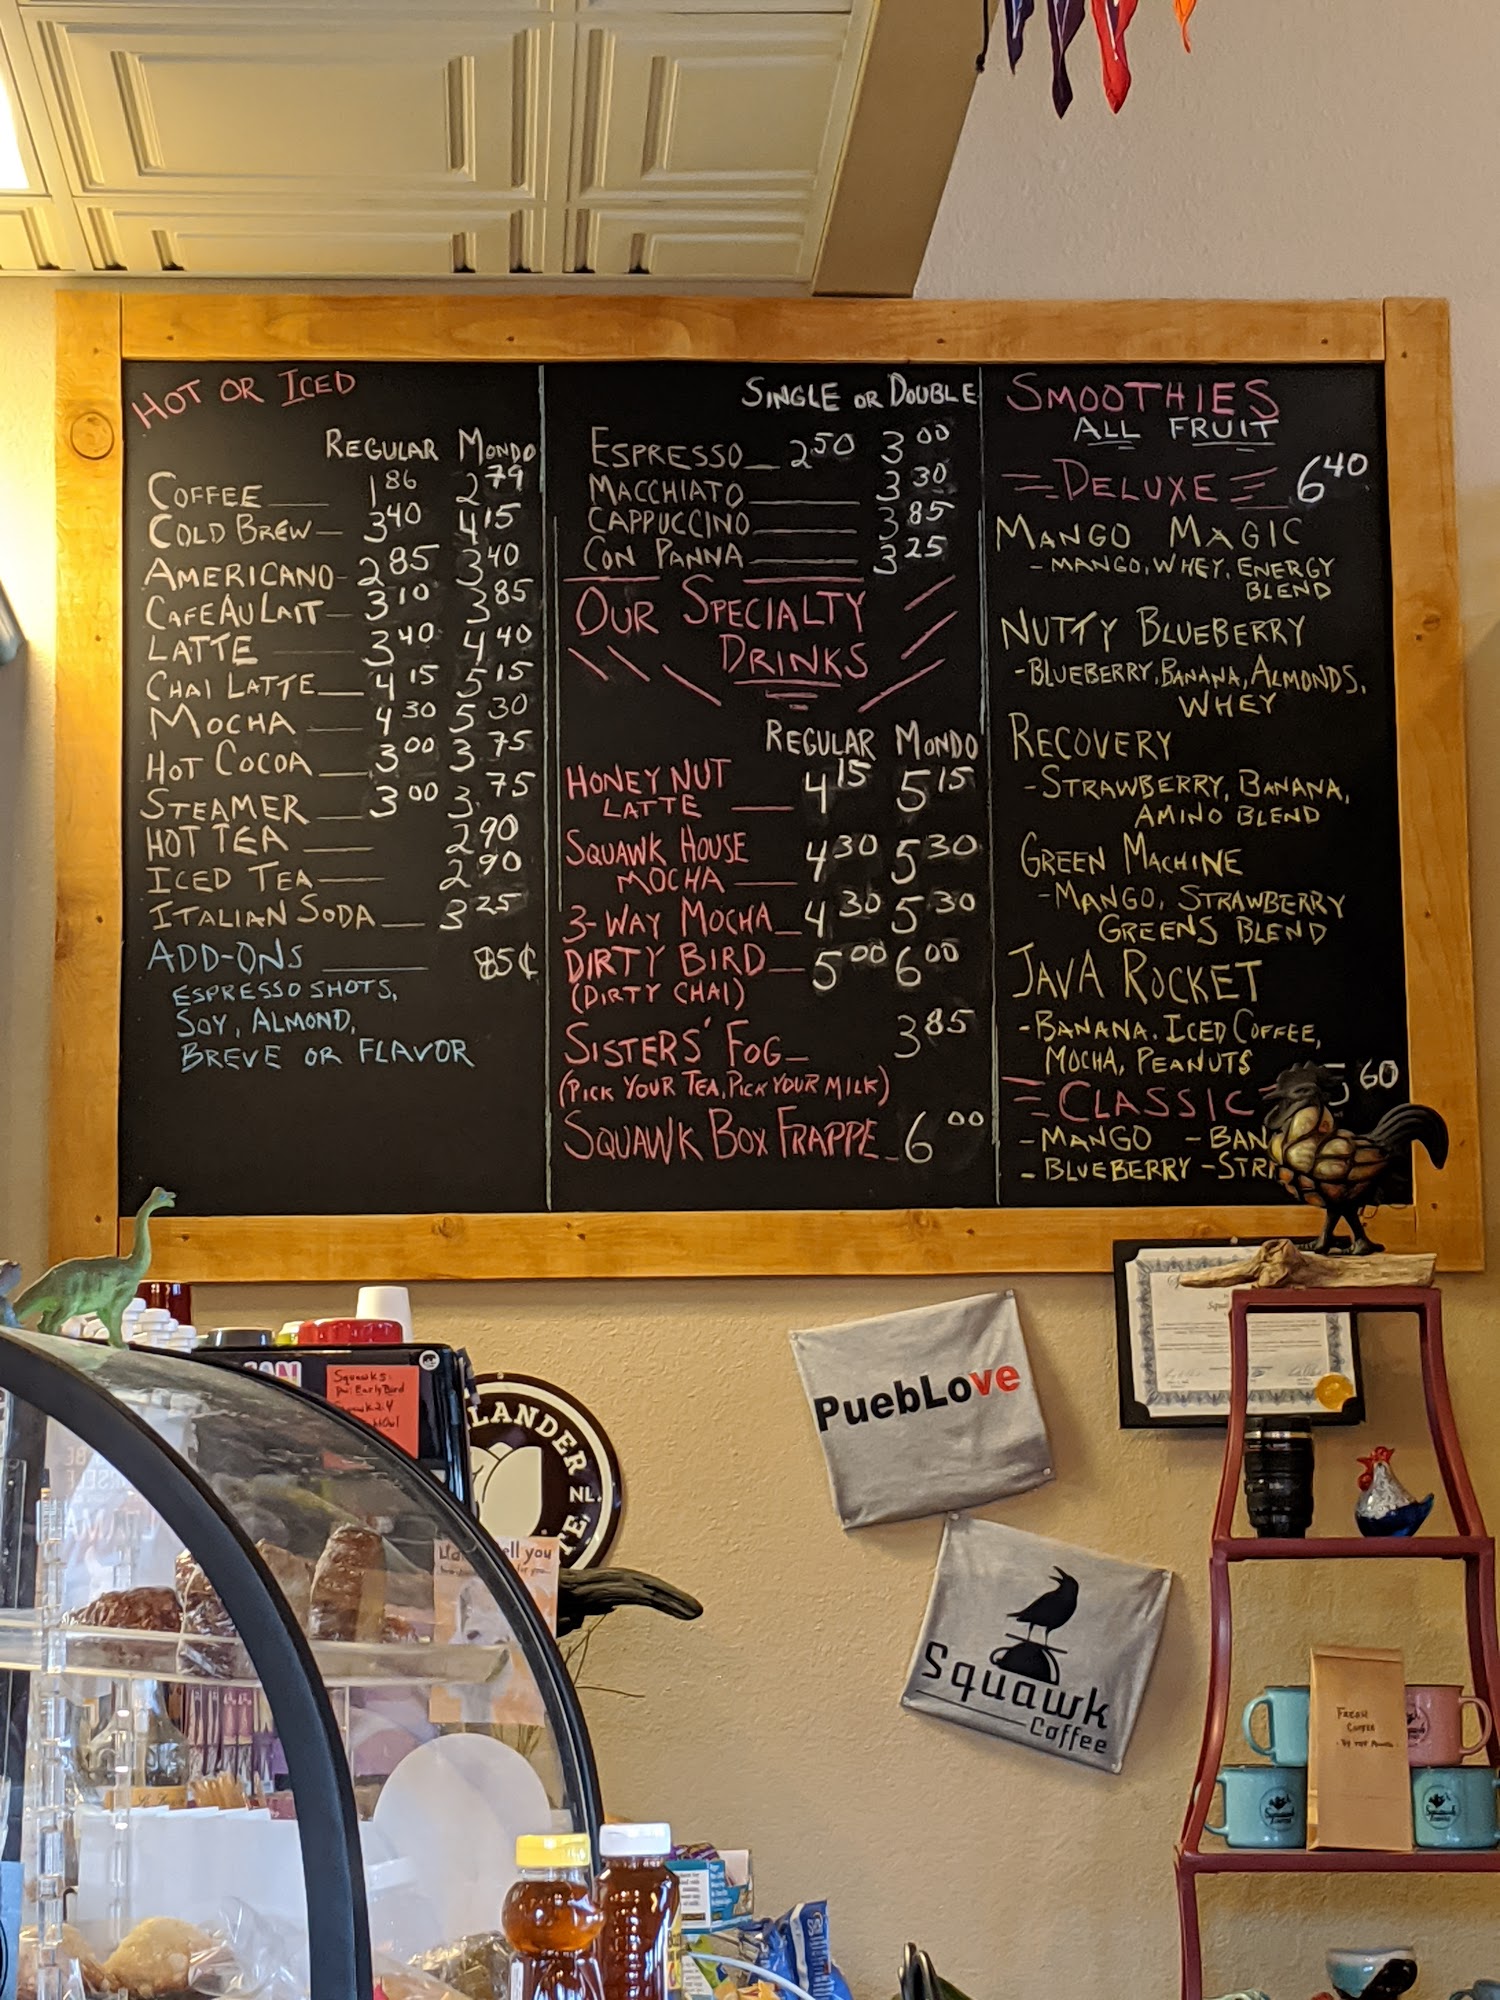 HOT OR ICED
REGULAR MONDO
COFFEE 1.86 2.79
COLD BREW 3.40 4.15
AMERICANO 2.85 3.40
CAFE AU LAIT 3.10 3.85
LATTE 3.40 4.40
CHAI LATTE 4.15 5.15
MOCHA 4.30 5.30
HOT COCOA 3.00 3.75
STEAMER 3.00 3.75
HOT TEA 2.90
ICED TEA 2.90
ITALIAN SODA 3.25
ADD-ONS 85¢
ESPRESSO SHOTS,
SOY, ALMOND,
BREVE OR FLAVOR
SINGLE OR DOUBLE
ESPRESSO 2.50 3.00
MACCHIATO 3.30
CAPPUCCINO 3.85
CON PANNA 3.25
OUR SPECIALTY
DRINKS
REGULAR MONDO
HONEY NUT
LATTE 4.15 5.15
SQUAWK HOUSE
MOCHA 4.30 5.30
3-WAY MOCHA 4.30 5.30
DIRTY BIRD 5.00 6.00
(DIRTY CHAI)
SISTERS' FOG 3.85
(PICK YOUR TEA, PICK YOUR MILK)
SQUAWK BOX FRAPPE 6.00
SMOOTHIES
ALL FRUIT
DELUXE 6.40
MANGO MAGIC
-MANGO, WHEY, ENERGY
BLEND
NUTTY BLUEBERRY
-BLUEBERRY, BANANA, ALMONDS,
WHEY
RECOVERY
-STRAWBERRY, BANANA,
AMINO BLEND
GREEN MACHINE
-MANGO, STRAWBERRY
GREENS BLEND
JAVA ROCKET
-BANANA, ICED COFFEE,
MOCHA, PEANUTS
CLASSIC 5.60
-MANGO -BAN
-BLUEBERRY -STR
PuebLove
Squawk
Coffee
LANDER
NL.
Squawk 5:
Early Bird
FRESH
COFFEE